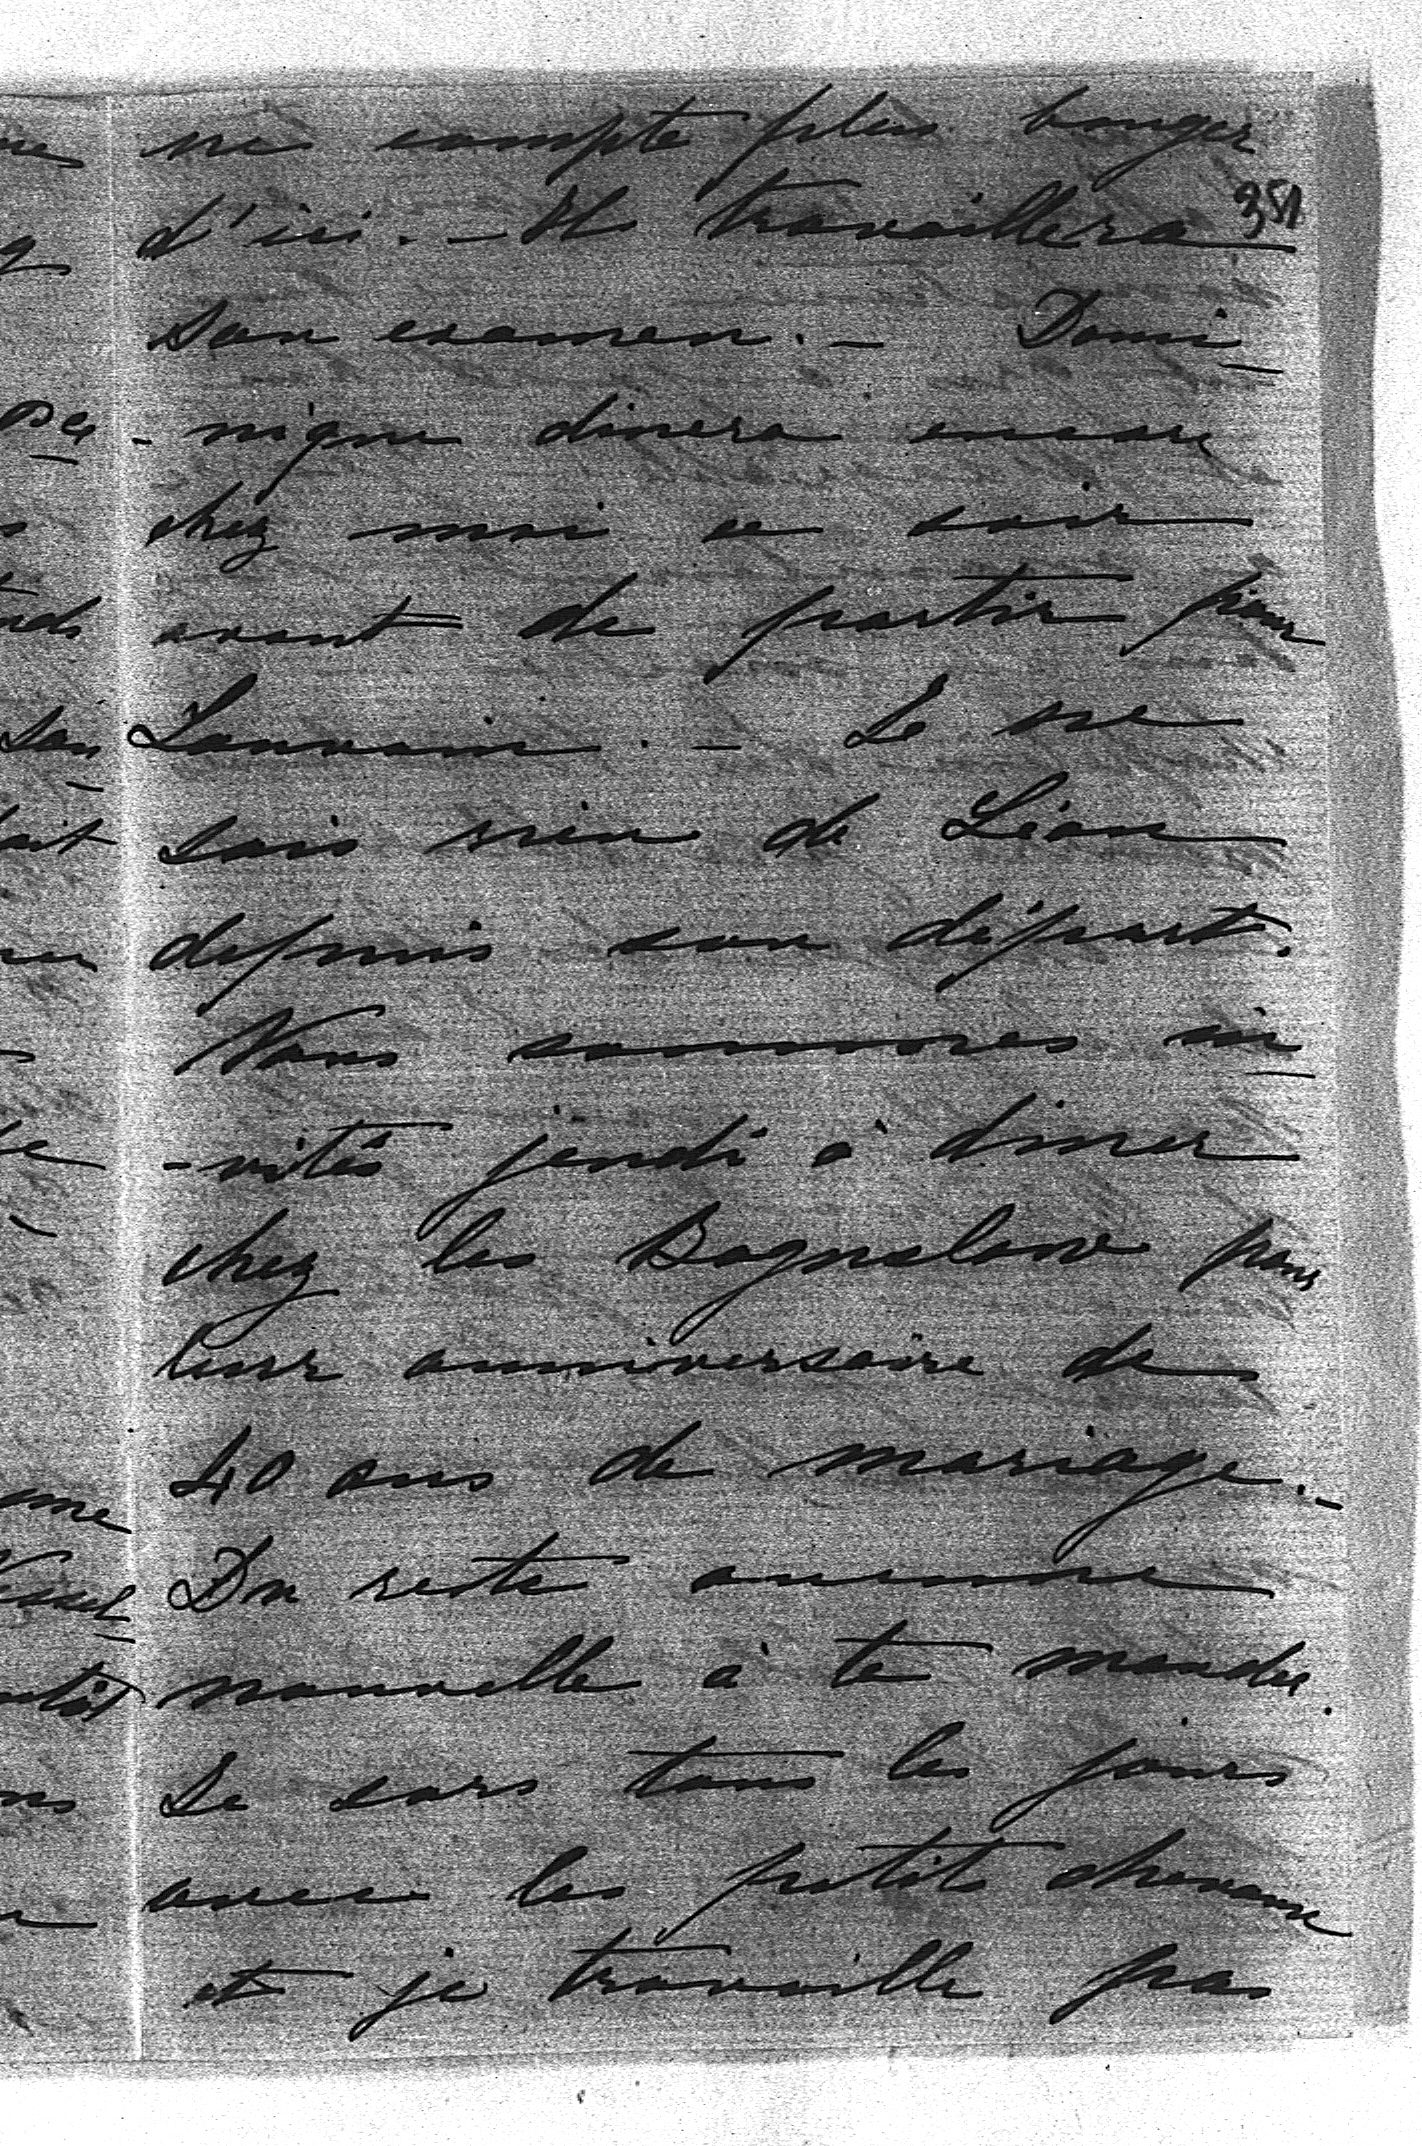 ne compte plus bouger
351
d'ici. - Il travaillera
son examen. - Domi
- nique dinera encore
chez moi ce soir
avant de partir pour
Louvain. - Je ne
sais rien de Léon
depuis son départ.
Nous sommes in
-vités jeudi à diner
chez les pour
leur anniversaire de
40 ans de mariage. -
Du reste aucune
nouvelle à te mander.
Je sors tous les jours
avec les petits chevaux
et je travaille pas